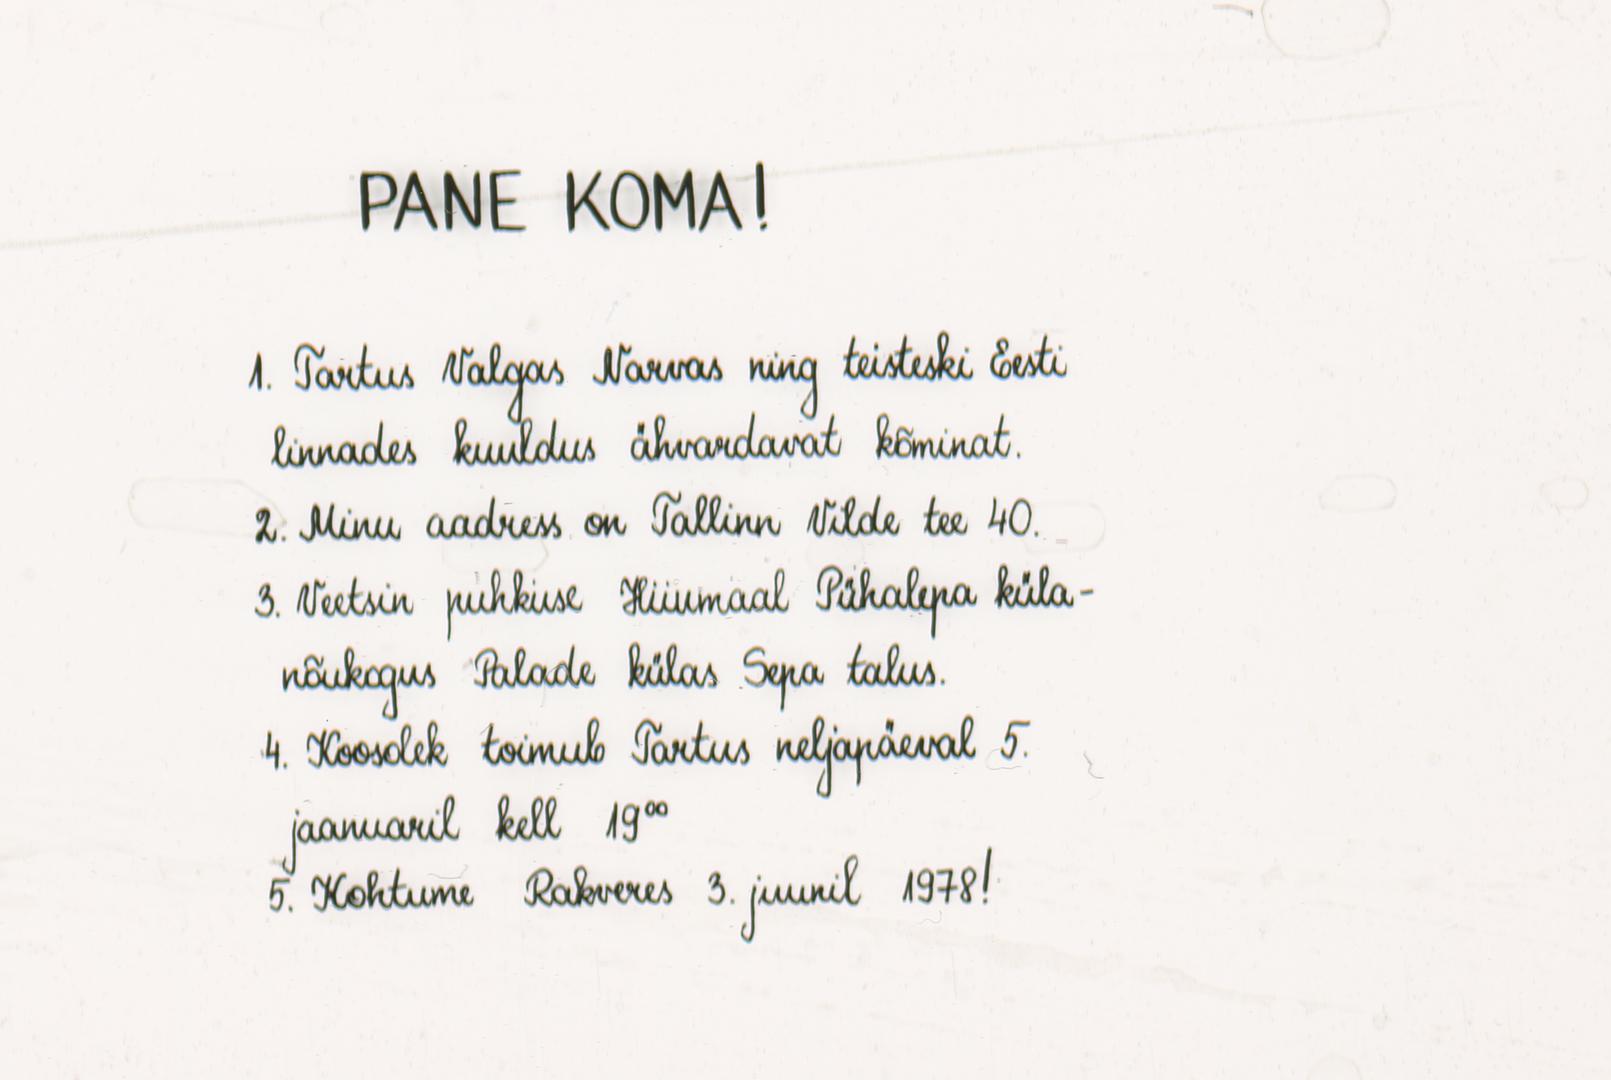 PANE KOMA!
1. Tartus Valgas Narvas ning teisteski Eesti
linnades kuuldus ähvardavat kõminat.
2. Minu aadress on Tallinn Vilde tee 40.
3. Veetsin puhkuse Hiiumaal Pühalepa küla-
nõukogus Palade külas Sepa talus.
4. Koosolek toimub Tartus neljapäeval 5.
jaanuaril kell 19⁰⁰
5. Kohtume Rakveres 3. juunil 1978!